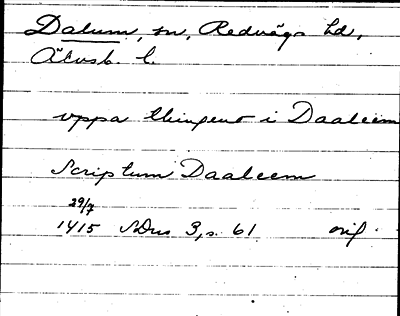 Dalum, sn, Redvägs hd,
Älvsb. l.
uppa thingeno i Daaleem
Scriptum Daaleem
29/7
1415 SDns 3, s. 61 orig.